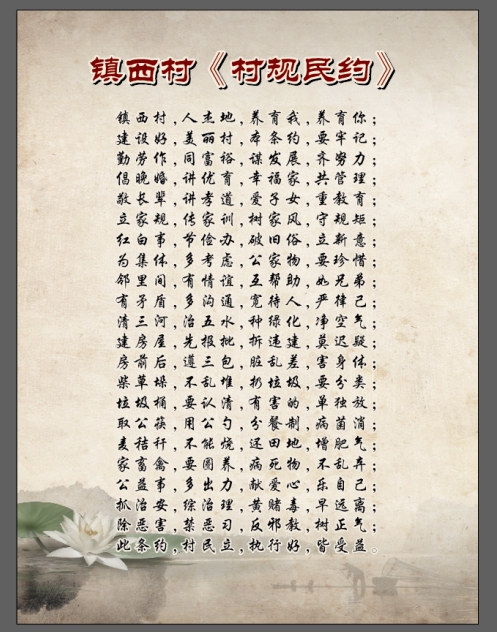 镇西村《村规民约》
镇西村，人杰地，养育我，养育你；
建设好，美丽村，本条约，要牢记；
勤劳作，同富裕，谋发展，齐努力；
倡晚婚，讲优育，幸福家，共管理；
敬长辈，讲孝道，爱子女，重教育；
立家规，传家训，树家风，守规矩；
红白事，节俭办，破旧俗，立新意；
为集体，多考虑，公家物，要珍惜；
邻里间，有情谊，互帮助，如兄弟；
有矛盾，多沟通，宽待人，严律己；
清三河，治五水，种绿化，净空气；
建房屋，先报批，拆违建，莫迟疑；
房前后，遵三包，脏乱差，害身体；
柴草垛，不乱堆，扔垃圾，要分类；
垃圾桶，要认清，有害的，单独放；
取公筷，用公勺，分餐制，病菌消；
麦秸秆，不能烧，还田地，增肥气；
家畜禽，要圈养，病死物，不乱弃；
公益事，多出力，献爱心，乐自己；
抓治安，综治理，黄赌毒，早远离；
除恶害，禁恶习，反邪教，树正气；
此条约，村民立，执行好，皆受益。